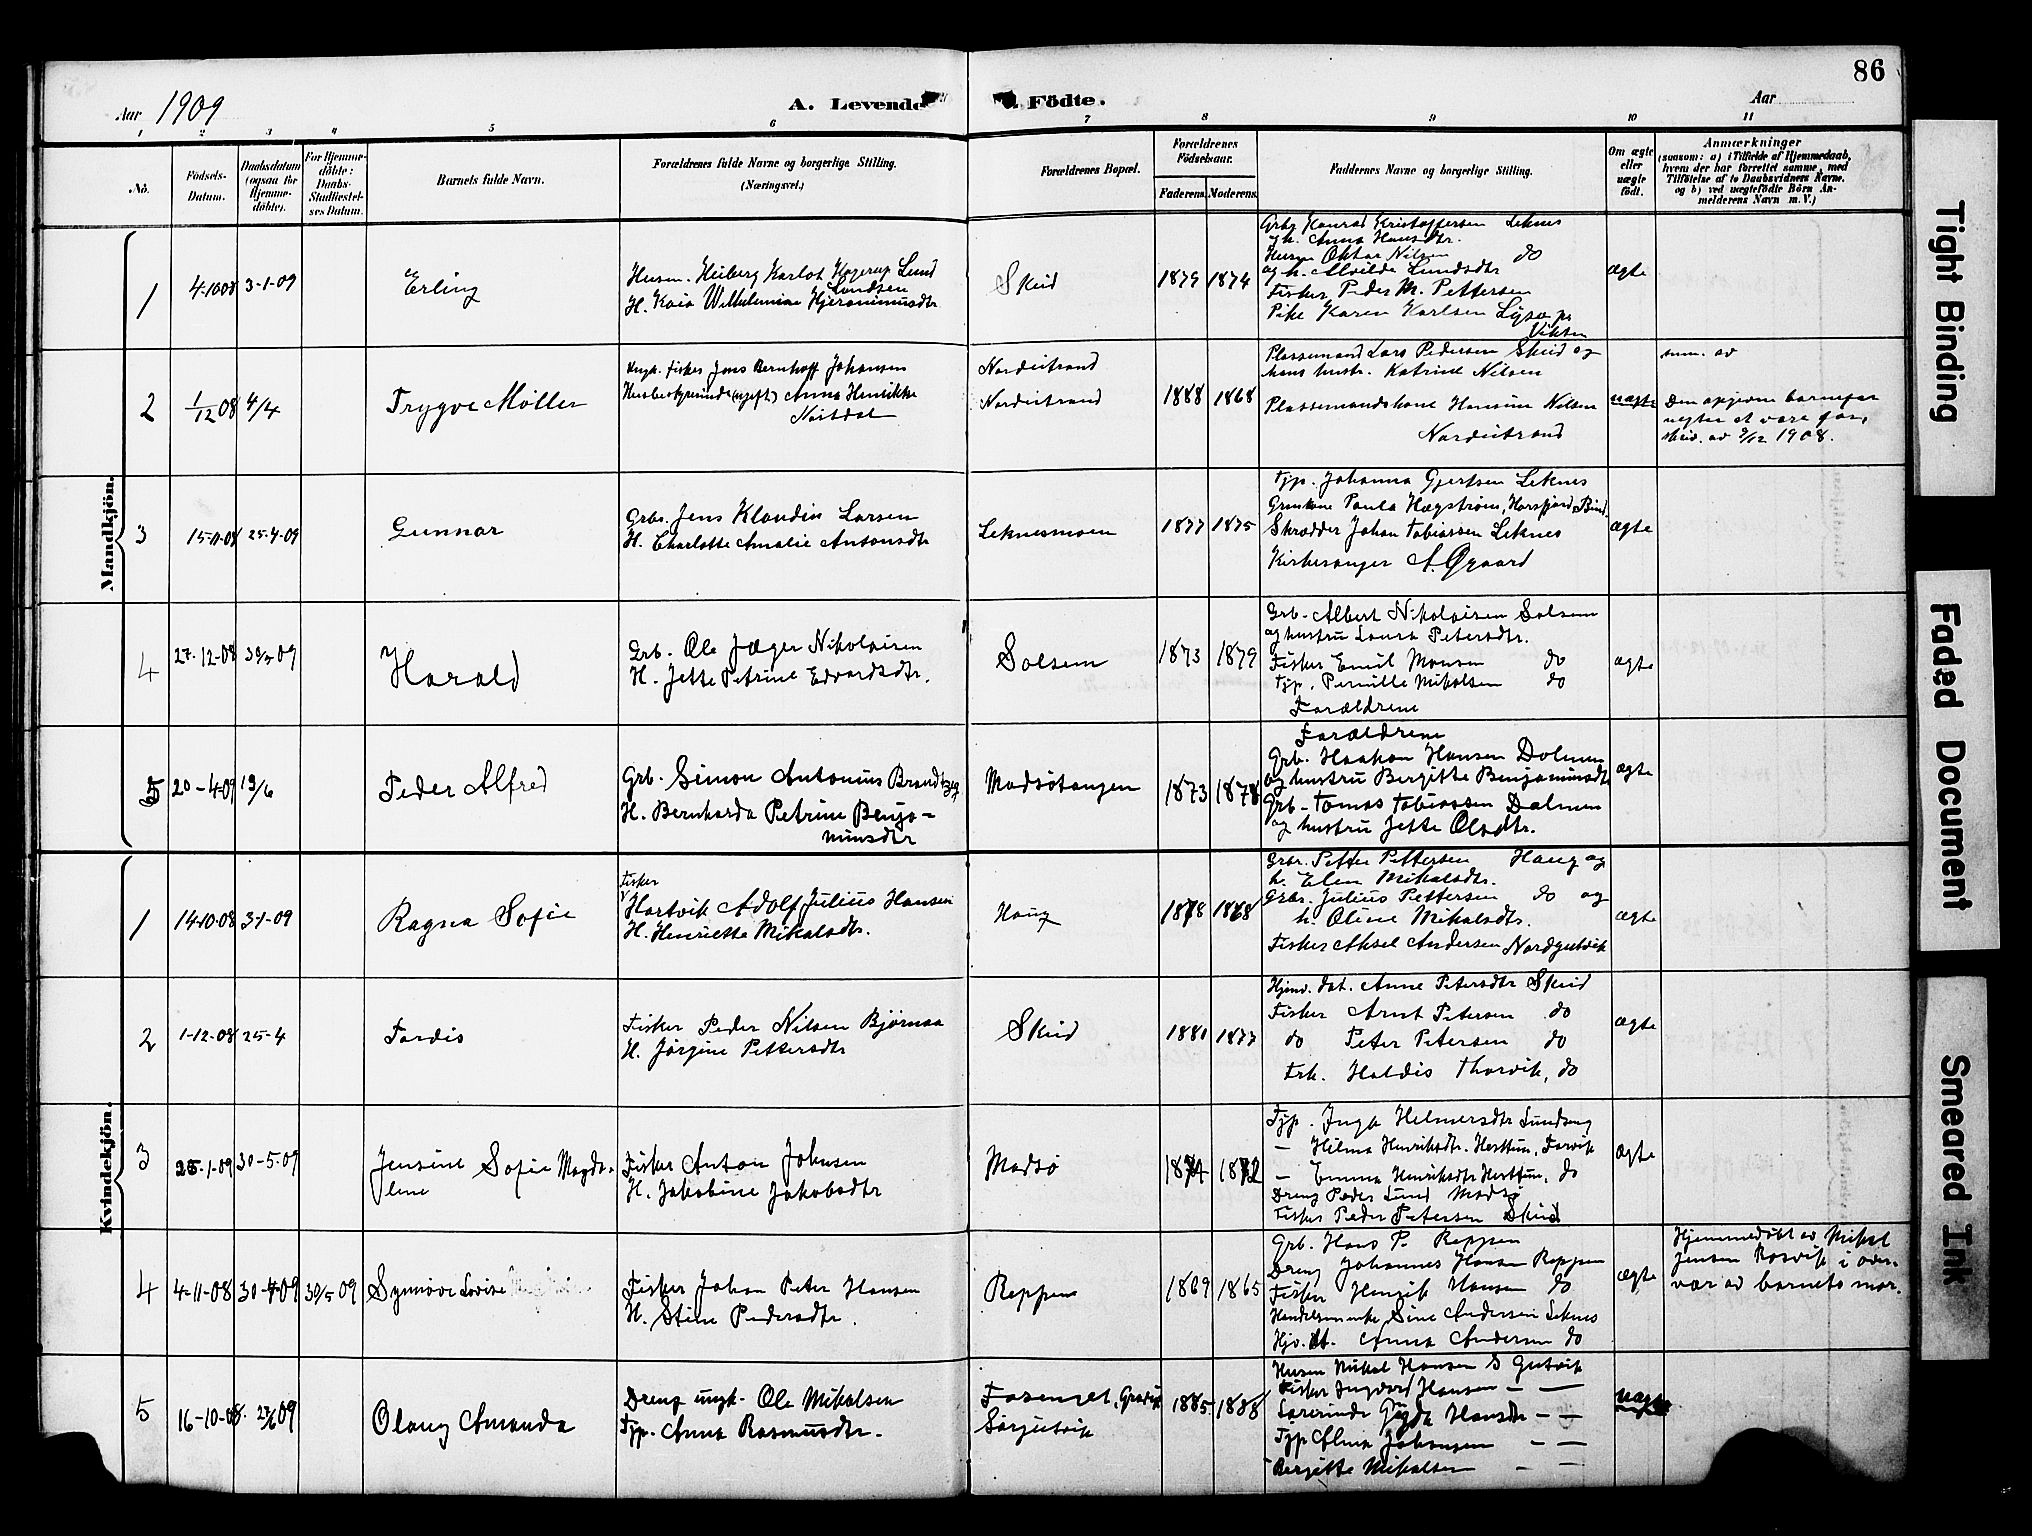 86
Aar 1909
A. Levende Födte.
Aar
1 2 3 4 5 6 7 8 9 10 11
No.
Födsels-Datum.
Daabsdatum (ogsaa for Hjemme-döbte).
For Hjemme-döbte: Daabs-Stadfæstel-ses Datum.
Barnets fulde Navn.
Forældrenes fulde Navne og borgerlige Stilling. (Næringsvei.)
Forældrenes Bopæl.
Forældrenes Födselsaar.
Faderens. Moderens.
Faddernes Navne og borgerlige Stilling.
Om ægte eller uægte födt.
Anmærkninger
(saasom: a) i Tilfælde af Hjemmedaab, hvem der har forrettet samme, med Tilföielse af to Daabsvidners Navne, og b) ved uægtefödte Börn An-melderens Navn m. V.)
Mandkjön.
1 4-10 08 3-1-09 Erling
Husm. Heiberg Karlot Hagerup Lund
Lundsen
H. Kaia Wilhelmine Hjeronimusdtr
Skeid 1879 1874
Grbr Konrad Kristoffersen Leknes
og h. Anna Hansdtr.
Husm Oktav Nilsen do
og h. Alvilde Lundsdtr
Fisker Peder M. Pettersen
Pike Karen Karlsen
ægte
2 1/12 08 4/4 Trygve Möller
Ungk. Fisker Jens Bernhoff Johansen
Husbestyrerinde (ugift) Anna Henrikke
Nordeistrand
Nordeistrand
1888 1868
Plassemand Lars Pedersen Skeid og
hans hustr. Katrine Nilsen
Plassemandskone Hansine Nilsen
Nordeistrand
uægte
Den opgivne barnefar
negter at være far,
skriv. av 9/12 1908.
3 15-11-08 25-4-09 Gunnar
Grbr. Jens Klaudiu Larsen
H. Charlotte Amalie Antonsdtr
Leknesmoen 1877 1875
Tjp. Johanna Gjertsen Leknes
Paula Hægstrøm, Horsfjord, Bind.
Skrædder Johan Tobiassen Leknes
Kirkesanger A. Øgaard
ægte
4 27-12-08 30/5 09 Harald
Grb. Ole Jæger Nikolaisen
H. Jette Petrine Edvardsdtr.
Solsem 1873 1879
Grb. Albert Nikolaisen Solsem
og hustru Laura Petersdtr.
Fisker Emil Monsen do
Tjp. Pernille Mikalsen do
Forældrene
ægte
5 20-4-09 13/6 Peder Alfred
Grb. Simon Antonius Brandtzæg
H. Bernharda Petrine Benja-
minsdtr
Madsötangen 1873 1878
Forældrene
Grb. Haakon Hansen Dolmen
og hustru Bergitte Benjaminsdt
Grb. Tomas Tobiassen Dalmen
og hustru Jette Olsdtr.
ægte
Kvindekjön.
1 14-10-08 3-1-09 Ragna Sofie
Fisker
Hartvik Adolf Julius Hansen
H. Henriette Mikalsdtr.
Haug 1878 1868
Grbr. Petter Pettersen Haug og
h. Elen Mikalsdtr.
Grbr. Julius Pettersen do og
h. Oline Mikalsdtr.
Fisker Aksel Andersen Nordgutvik
ægte
2 1-12-08 25-4 Tordis
Fisker Peder Nilsen Björnaa
H. Jörgine Pettersdtr
Skeid 1881 1877
Hjmv. dat. Anne Petersdtr Skeid
Fisker Arnt Petersen do
do Peter Petersen do
Frk. Haldis Thorvik, do
ægte
3 25-1-09 30-5-09 Jensine Sofie Magda-
lene
Fisker Anton Johnsen
H. Jakobine Jakobsdtr
Madsö 1874 1872
Tjp. Inga Helmersdtr
— Hilma Henriksdtr. Horttun, Forvik
— Emma Henriksdtr Horttun, do
Dreng Peder Lund Madsö
Fisker Peder Petersen Skeid
ægte
4 4-11-08 30-4-09 30/5 09 Synnöve Lovise
Fisker Johan Peter Hansen
H. Stine Pedersdtr.
Reppen 1869 1865
Grb. Hans P. Reppen
Dreng Johannes Hansen Reppen
Fisker Henrik Hansen do
Handelsmenke Sine Andersen Leknes
Hjv. dt. Anna Andersen do
ægte
Hjemmedöbt av Mikal
Jensen Rosvik i over-
vær av barnets mor.
5 16-10-08. 27/6 09 Olaug Amanda
Dreng ungk. Ole Mikalsen
Tjp. Anna Rasmusdtr.
Sörgutvik
1885 1888
Husm Mikal Hansen S Gutvik
Fisker Ingvard Hansen — —
Lærerinde Gyda Hansdtr — —
Tjp Alma Johansen — —
Bergitte Mikalsen — —
uægte
Tight Binding
Faded Document
Smeared Ink